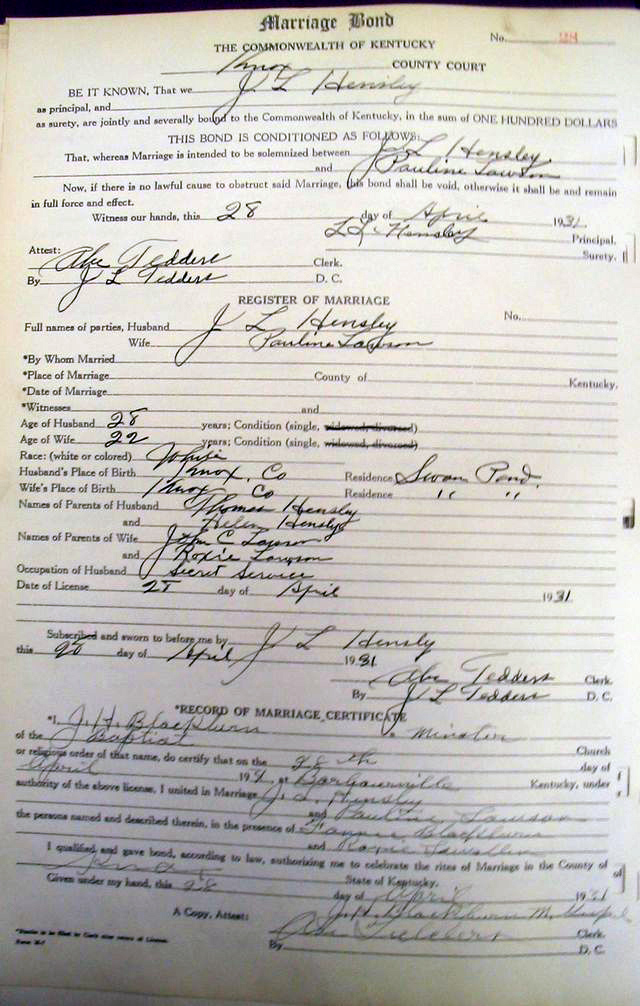 Marriage Bond
No. 28
THE COMMONWEALTH OF KENTUCKY
Knox COUNTY COURT
BE IT KNOWN, That we J L Hensley
as principal, and
as surety, are jointly and severally bound to the Commonwealth of Kentucky, in the sum of ONE HUNDRED DOLLARS
THIS BOND IS CONDITIONED AS FOLLOWS:
That, whereas Marriage is intended to be solemnized between J L Hensley
and Pauline Lawson
Now, if there is no lawful cause to obstruct said Marriage, this bond shall be void, otherwise it shall be and remain
in full force and effect.
Witness our hands, this 28 day of April 1931
Hensley Principal.
Surety.
Attest:
Abe Tedders Clerk.
By J L Tedders D. C.
REGISTER OF MARRIAGE
No.
Full names of parties, Husband J L Hensley
Wife Pauline Lawson
*By Whom Married
*Place of Marriage County of Kentucky.
*Date of Marriage
*Witnesses and
Age of Husband 28 years; Condition (single, widowed, divorced)
Age of Wife 22 years; Condition (single, widowed, divorced)
Race: (white or colored) White
Husband's Place of Birth Knox, Co Residence Swan Pond.
Wife's Place of Birth Knox Co Residence " "
Names of Parents of Husband Thomas Hensley
and Helen Hensley
Names of Parents of Wife John C Lawson
and Roxie Lawson
Occupation of Husband Secret Service
Date of License 28 day of April 1931
Subscribed and sworn to before me by J L Hensly
this 28 day of April 1931
Abe Tedders Clerk.
By J L Tedders D. C.
*RECORD OF MARRIAGE CERTIFICATE
*I, J. H. Blackburn a Minister
of the Baptist Church
or religious order of that name, do certify that on the 28th day of
April 19 at Barbourville, Kentucky, under
authority of the above license, I united in Marriage J. L. Hensley
and Pauline Lawson
the persons named and described therein, in the presence of Fannie Blackburn
and Roxie
I qualified and gave bond, according to law, authorizing me to celebrate the rites of Marriage in the County of
Knox State of Kentucky.
Given under my hand, this 28 day of April 1931
J. H. Blackburn M.
A Copy, Attest: Abe Tedders Clerk.
By D. C.
Form